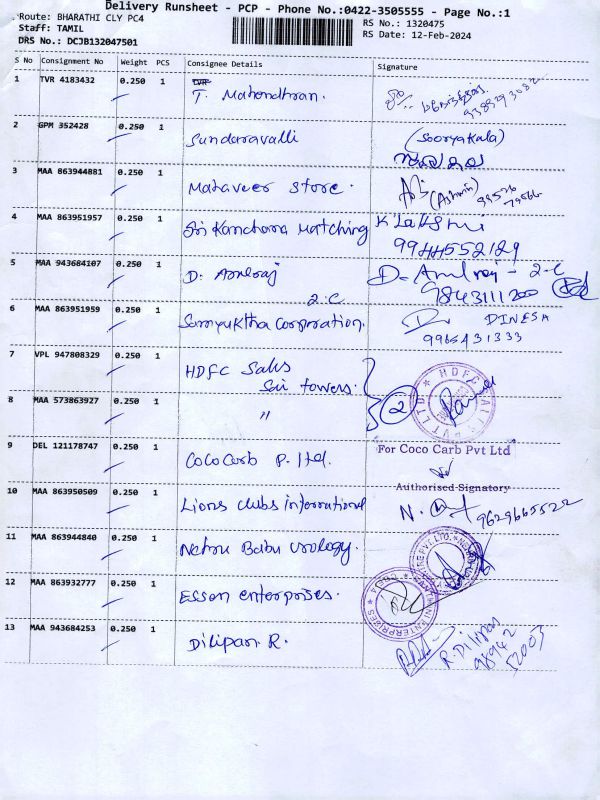 Delivery Runsheet - PCP - Phone No.:0422-3505555 - Page No.:1
Route: BHARATHI CLY PC4
RS No.: 1320475
Staff: TAMIL
RS Date: 12-Feb-2024
DRS No.: DCJB132047501
S No Consignment No Weight PCS Consignee Details Signature
1 TVR 4183432 0.250 1 T. Mahendhran.
2 GPM 352428 0.250 1 Sundaravalli (Sooryakala)
3 MAA 863944881 0.250 1 Mahaveer store. (Ashwin)
4 MAA 863951957 0.250 1 Sri Kanchana Matching K Lakshmi
9944552129
5 MAA 943684107 0.250 1 D. Amalraj D. Amalraj - 2-C
2-C 9843111200
6 MAA 863951959 0.250 1 Samyuktha Corporation. DINESH
9965431333
7 VPL 947808329 0.250 1 HDFC Sales
Sai towers.
8 MAA 573863927 0.250 1 " 2
9 DEL 121178747 0.250 1 Coco Carb P. ltd. For Coco Carb Pvt Ltd
Authorised Signatory
10 MAA 863950509 0.250 1 Lions Clubs international
9629665522
11 MAA 863944840 0.250 1 Nehru Babu urology.
12 MAA 863932777 0.250 1 Essen enterprises.
13 MAA 943684253 0.250 1 Dilipan R. R. Dilipan
98942
52003